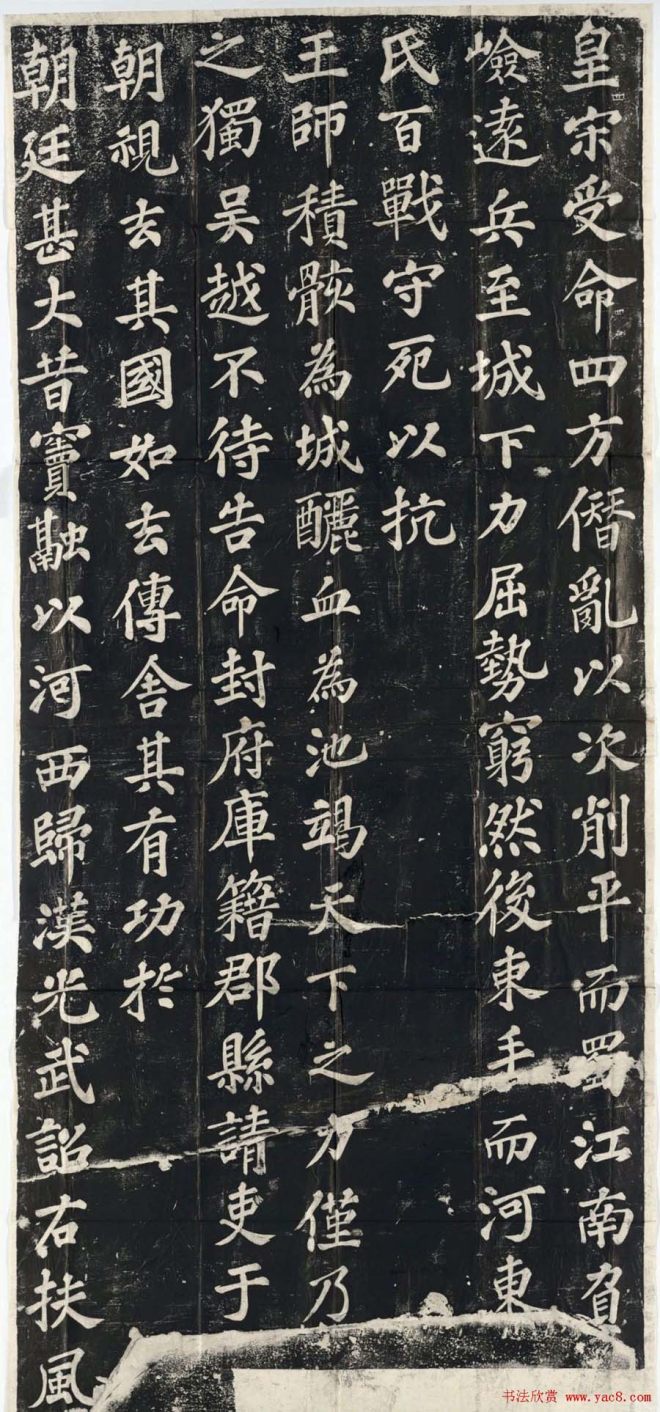 皇宋受命四方僭亂以次削平而蜀江南負
嶮遠兵至城下力屈勢窮然後束手而河東
氏百戰守死以抗
王師積骸為城釃血為池竭天下之力僅乃
之獨吴越不待告命封府庫籍郡縣請吏于
朝視去其國如去傳舍其有功於
朝廷甚大昔竇融以河西歸漢光武詔右扶風
书法欣赏 www.yac8.com